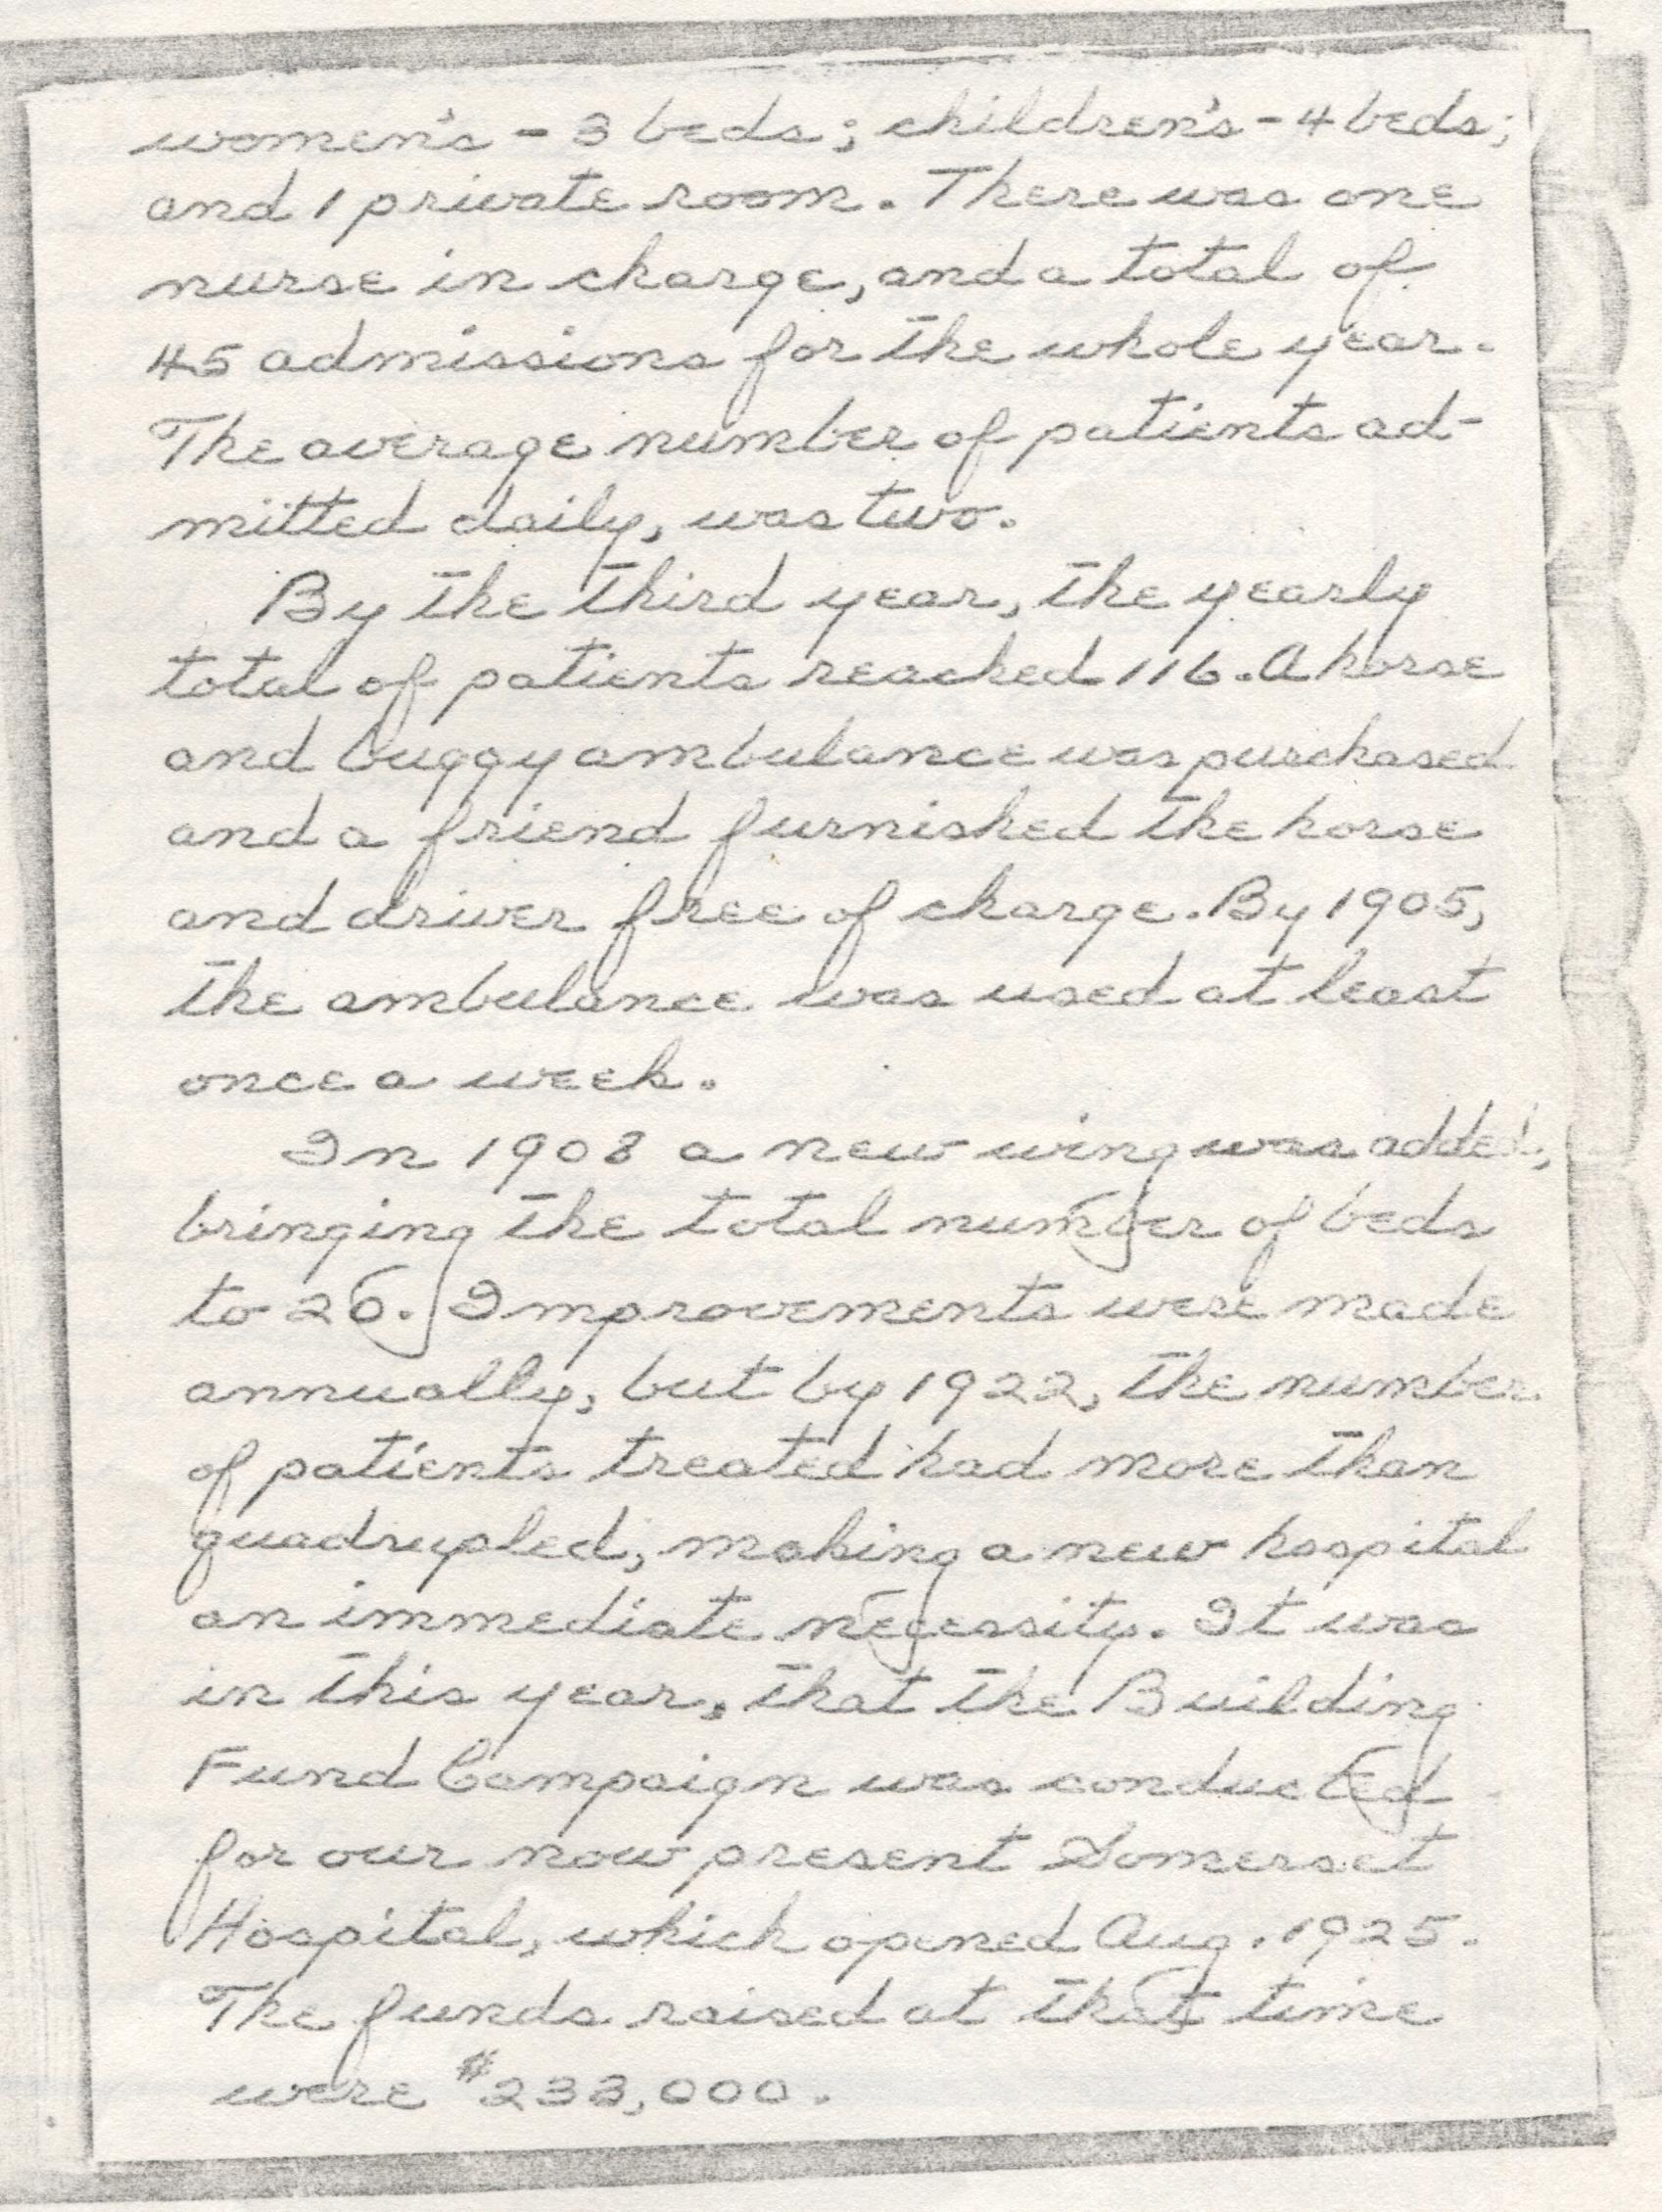 women's - 3 beds; children's - 4 beds;
and 1 private room. There was one
nurse in charge, and a total of
45 admissions for the whole year.
The average number of patients ad-
mitted daily, was two.
By the third year, the yearly
total of patients reached 116. A horse
and buggy ambulance was purchased
and a friend furnished the horse
and driver free of charge. By 1905,
the ambulance was used at least
once a week.
In 1908 a new wing was added,
bringing the total number of beds
to 20. Improvements were made
annually, but by 1922, the number
of patients treated had more than
quadrupled, making a new hospital
an immediate necessity. It was
in this year, that the Building
Fund Campaign was conducted
for our now present Somerset
Hospital, which opened Aug. 1925.
The funds raised at that time
were $233,000.